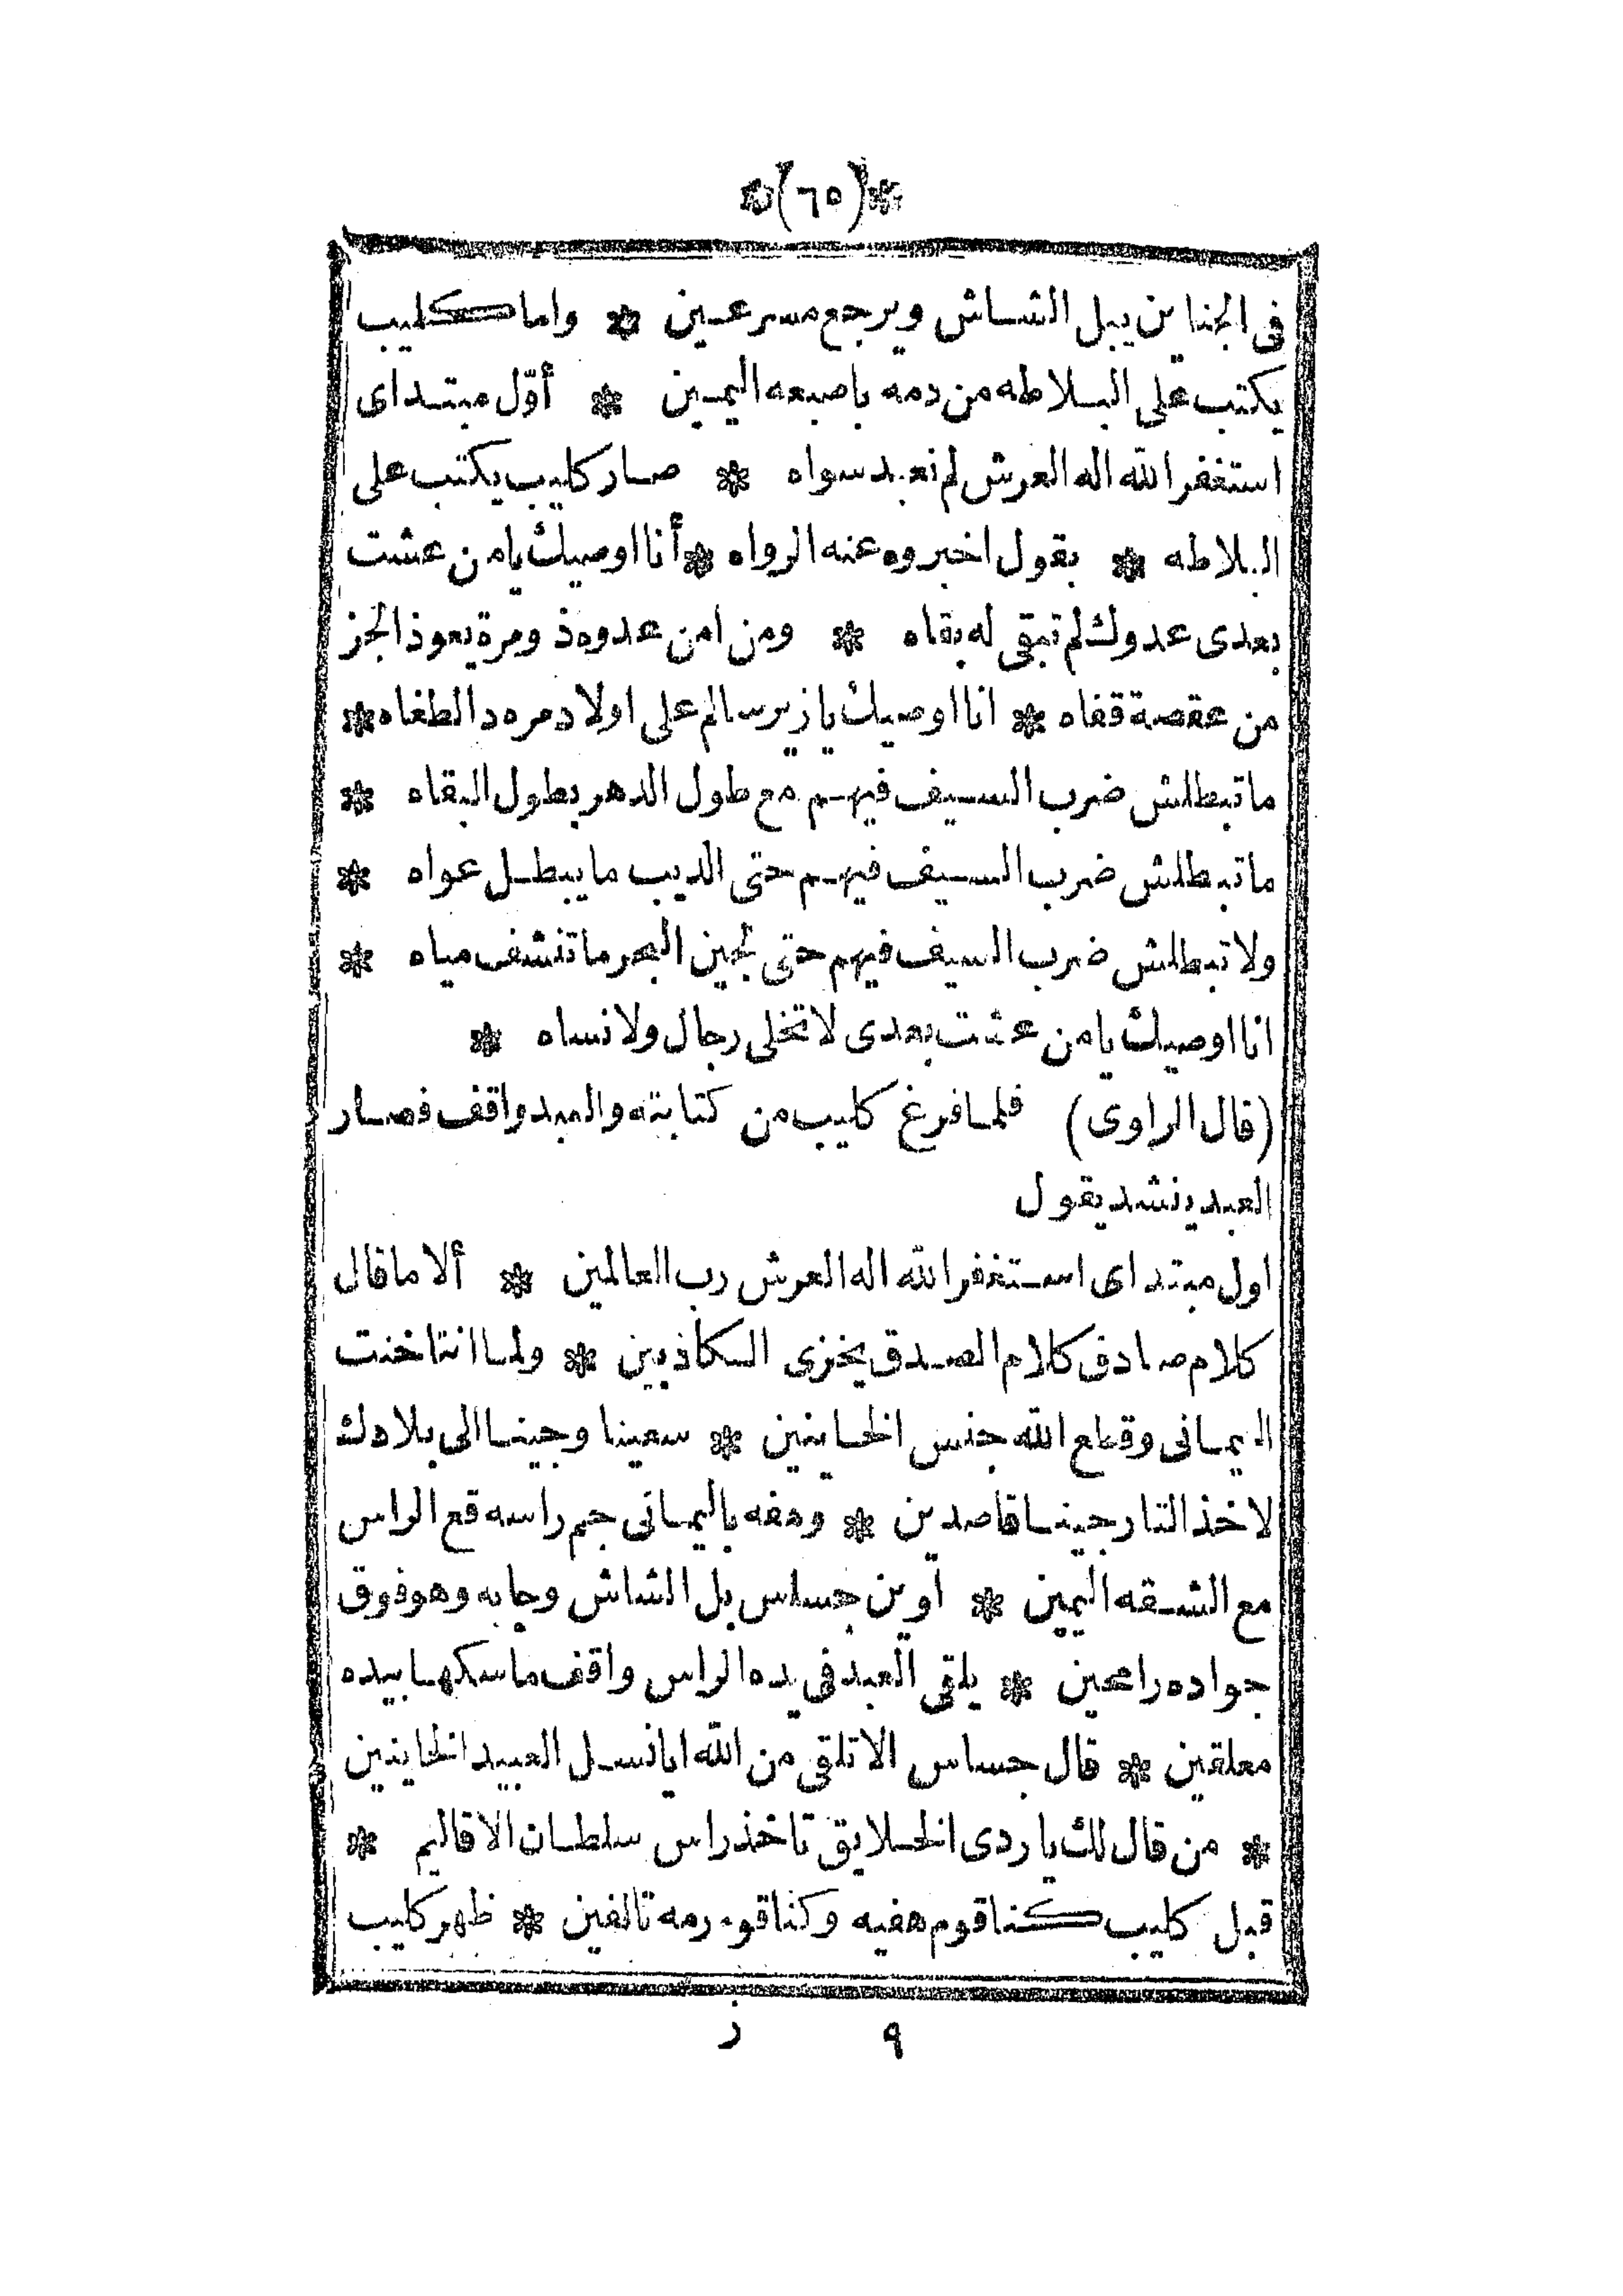 *(٦٥)*
فى الجناين يبل الشاش ويرجع مسرعين * واما كليب
يكتب على البلاطه من دمه باصبعه اليمين * أوّل مبتداى
استغفر الله اله العرش لم نعبد سواه * صار كليب يكتب على
البلاطه * يقول اخبروه عنه الرواه * أنا اوصيك يا من عشت
بعدى عدوك لم تبقى له بقاه * ومن امن عدوه ذ ومرة يعوذ الجز
من عقصة قفاه * انا اوصيك يا زير سالم على اولاد مره د الطغاه *
ما تبطلش ضرب السيف فيهم مع طول الدهر بطول البقاه *
ما تبطلش ضرب السيف فيهم حتى الديب ما يبطل عواه *
ولا تبطلش ضرب السيف فيهم حتى لجين البحر ما تنشف مياه *
انا اوصيك يا من عشت بعدى لا تخلى رجال ولا نساه *
(قال الراوى) فلما فرغ كليب من كتابته والعبد واقف فصار
العبد ينشد يقول
اول مبتداى استغفر الله اله العرش رب العالمين * ألا ما قال
كلام صادق كلام الصدق يخزى الكاذبين * ولما انتا خنت
اليمانى وقطع الله جنس الخاينين * سعينا وجينا الى بلادك
لاخذ التار جينا قاصدين * وهفه باليمانى جم راسه قع الراس
مع الشقه اليمين * أوين جساس بل الشاش وجابه وهو فوق
جواده رامحين * يلقى العبد فى يده الراس واقف ماسكها بيده
معلقين * قال جساس الا تلقى من الله ايا نسل العبيد الخاينين
* من قال لك يا ردى الخلايق تاخذ راس سلطان الاقاليم *
قبل كليب كنا قوم هفيه وكنا قوم رمه تالفين * ظهر كليب
٩ ز